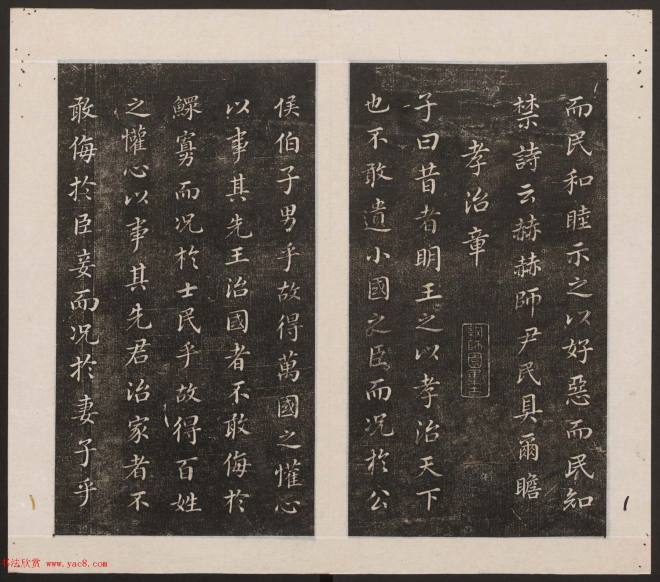 而民和睦示之以好惡而民知
禁詩云赫赫師尹民具爾瞻
孝治章
子曰昔者明王之以孝治天下
也不敢遺小國之臣而况於公
侯伯子男乎故得萬國之懽心
以事其先王治國者不敢侮於
鰥寡而况於士民乎故得百姓
之懽心以事其先君治家者不
敢侮於臣妾而况於妻子乎
书法欣赏 www.yac8.com